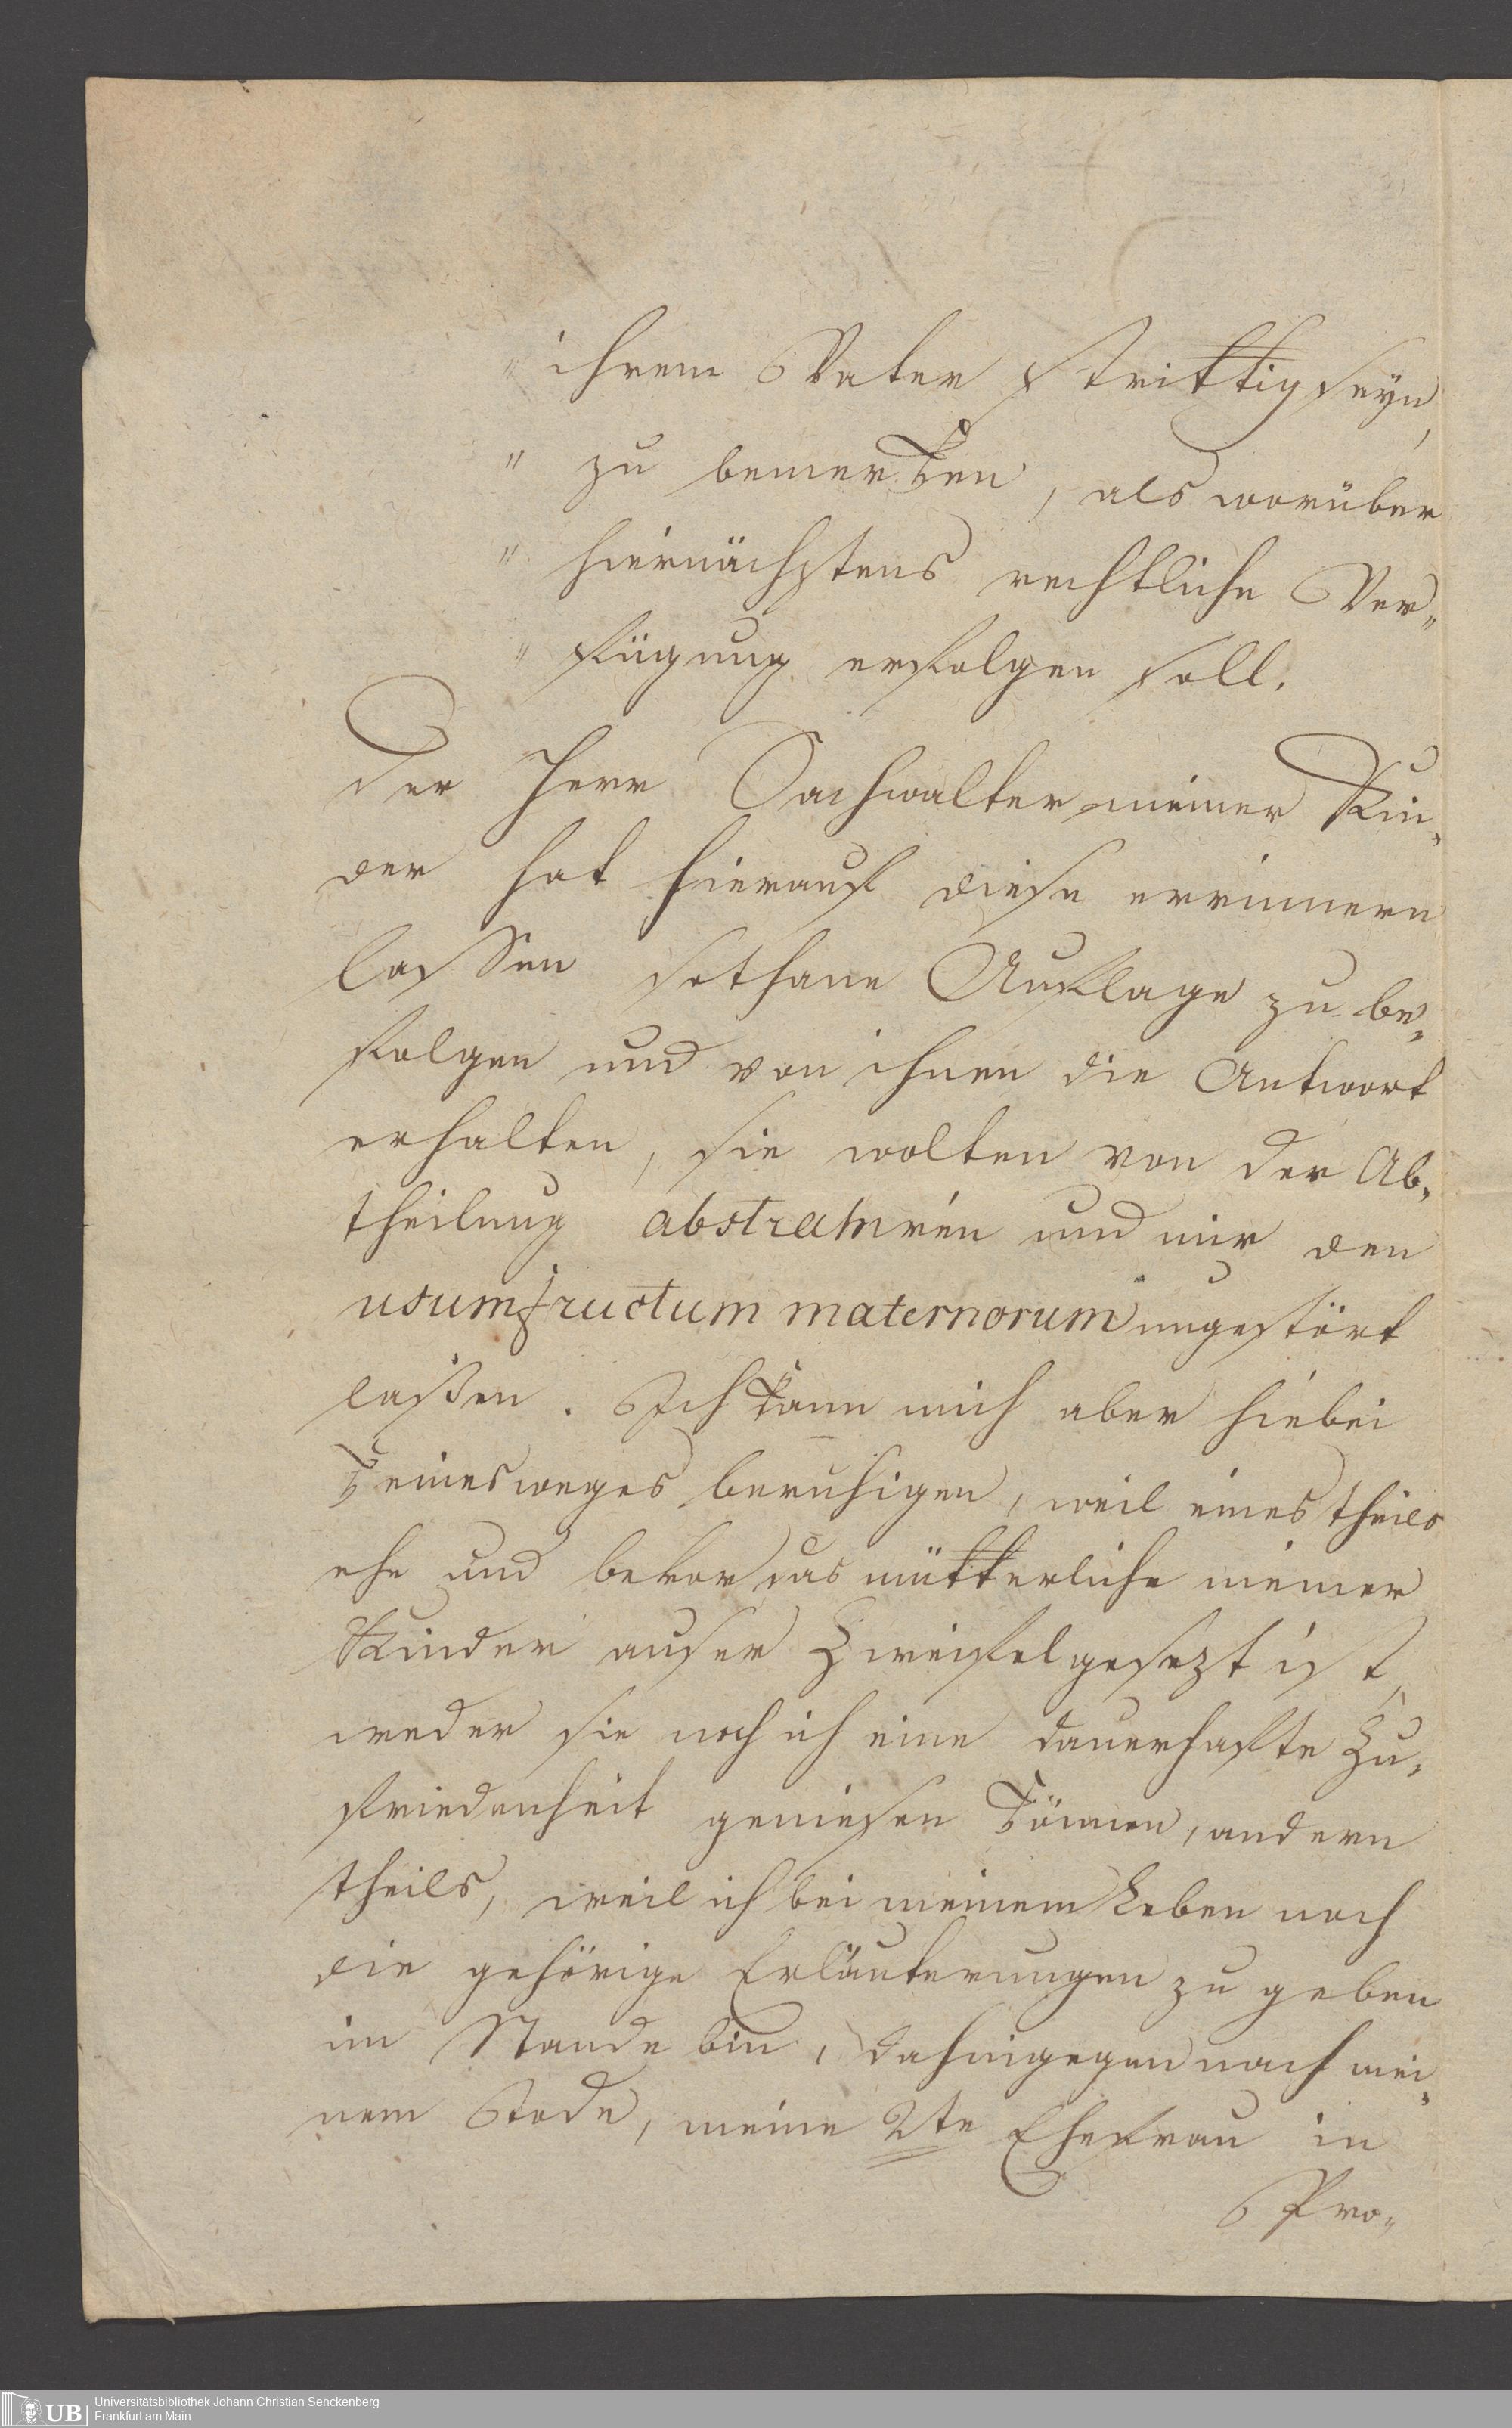 " ihrem Vater strittig seyn,
" zu bemerken, als worüber
" hiernächstens rechtliche Ver„
" fügung erfolgen soll.
Der Herr Sachwalter meiner Kin„
der hat hierauf diese erinnern
lassen sothane Auflage zu be„
folgen und von ihnen die Antwort
erhalten, sie wolten von der Ab„
theilung abstrahiren und mir den
usumfructum maternorum ungestört
laßen. Ich kann mich aber hiebei
keinesweges beruhigen, weil eines theils
ehe und bevor das mütterliche meiner
Kinder auser Zweifel gesezt ist,
weder sie noch ich eine dauerhafte Zu„
friedenheit geniesen können, andern
theils, weil ich bei meinem Leben noch
die gehörige Erläuterungen zu geben
im Stande bin, dahingegen nach mei„
nem Tode, meine 2te Ehefrau in
Pro„
Universitätsbibliothek Johann Christian Senckenberg
Frankfurt am Main
UB